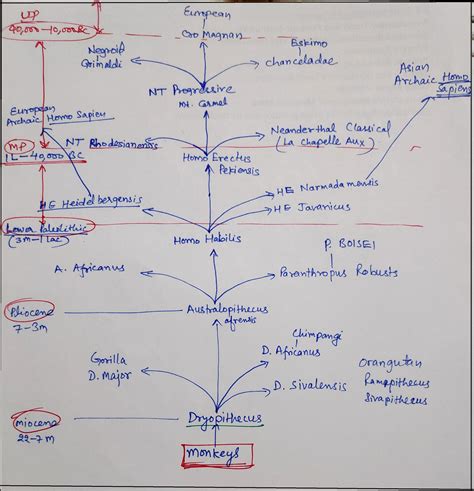 UP
40,000-10,000BC
European
Cro Magnan
Negroid
Grimaldi
Eskimo
Chanceladae
NT Progressive
Mt. Carmel
Asian
Archaic Homo
Sapiens
European
Archaic Homo Sapien
MP
1L-40,000 BC
NT Rhodesianensis
Neanderthal Classical
(La chapelle Aux)
Homo Erectus
Pekiensis
HE Heidelbergensis
HE Narmadamensis
HE Javanicus
Lower Paleolithic
(3m-1 lac)
Homo Habilis
A. Africanus
P. BOISEI
Paranthropus Robusts
Pliocene
7-3m
Australopithecus
afrensis
Gorilla
D. Major
Chimpangi
D. Africanus
D. Sivalensis
Orangutan
Ramapithecus
Sivapithecus
miocene
22-7 m
Dryopithecus
monkeys